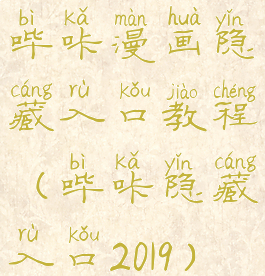 bì kǎ màn huà yǐn
哔咔漫画隐
cáng rù kǒu jiào chéng
藏入口教程
bì kǎ yǐn cáng
（哔咔隐藏
rù kǒu
入口2019）